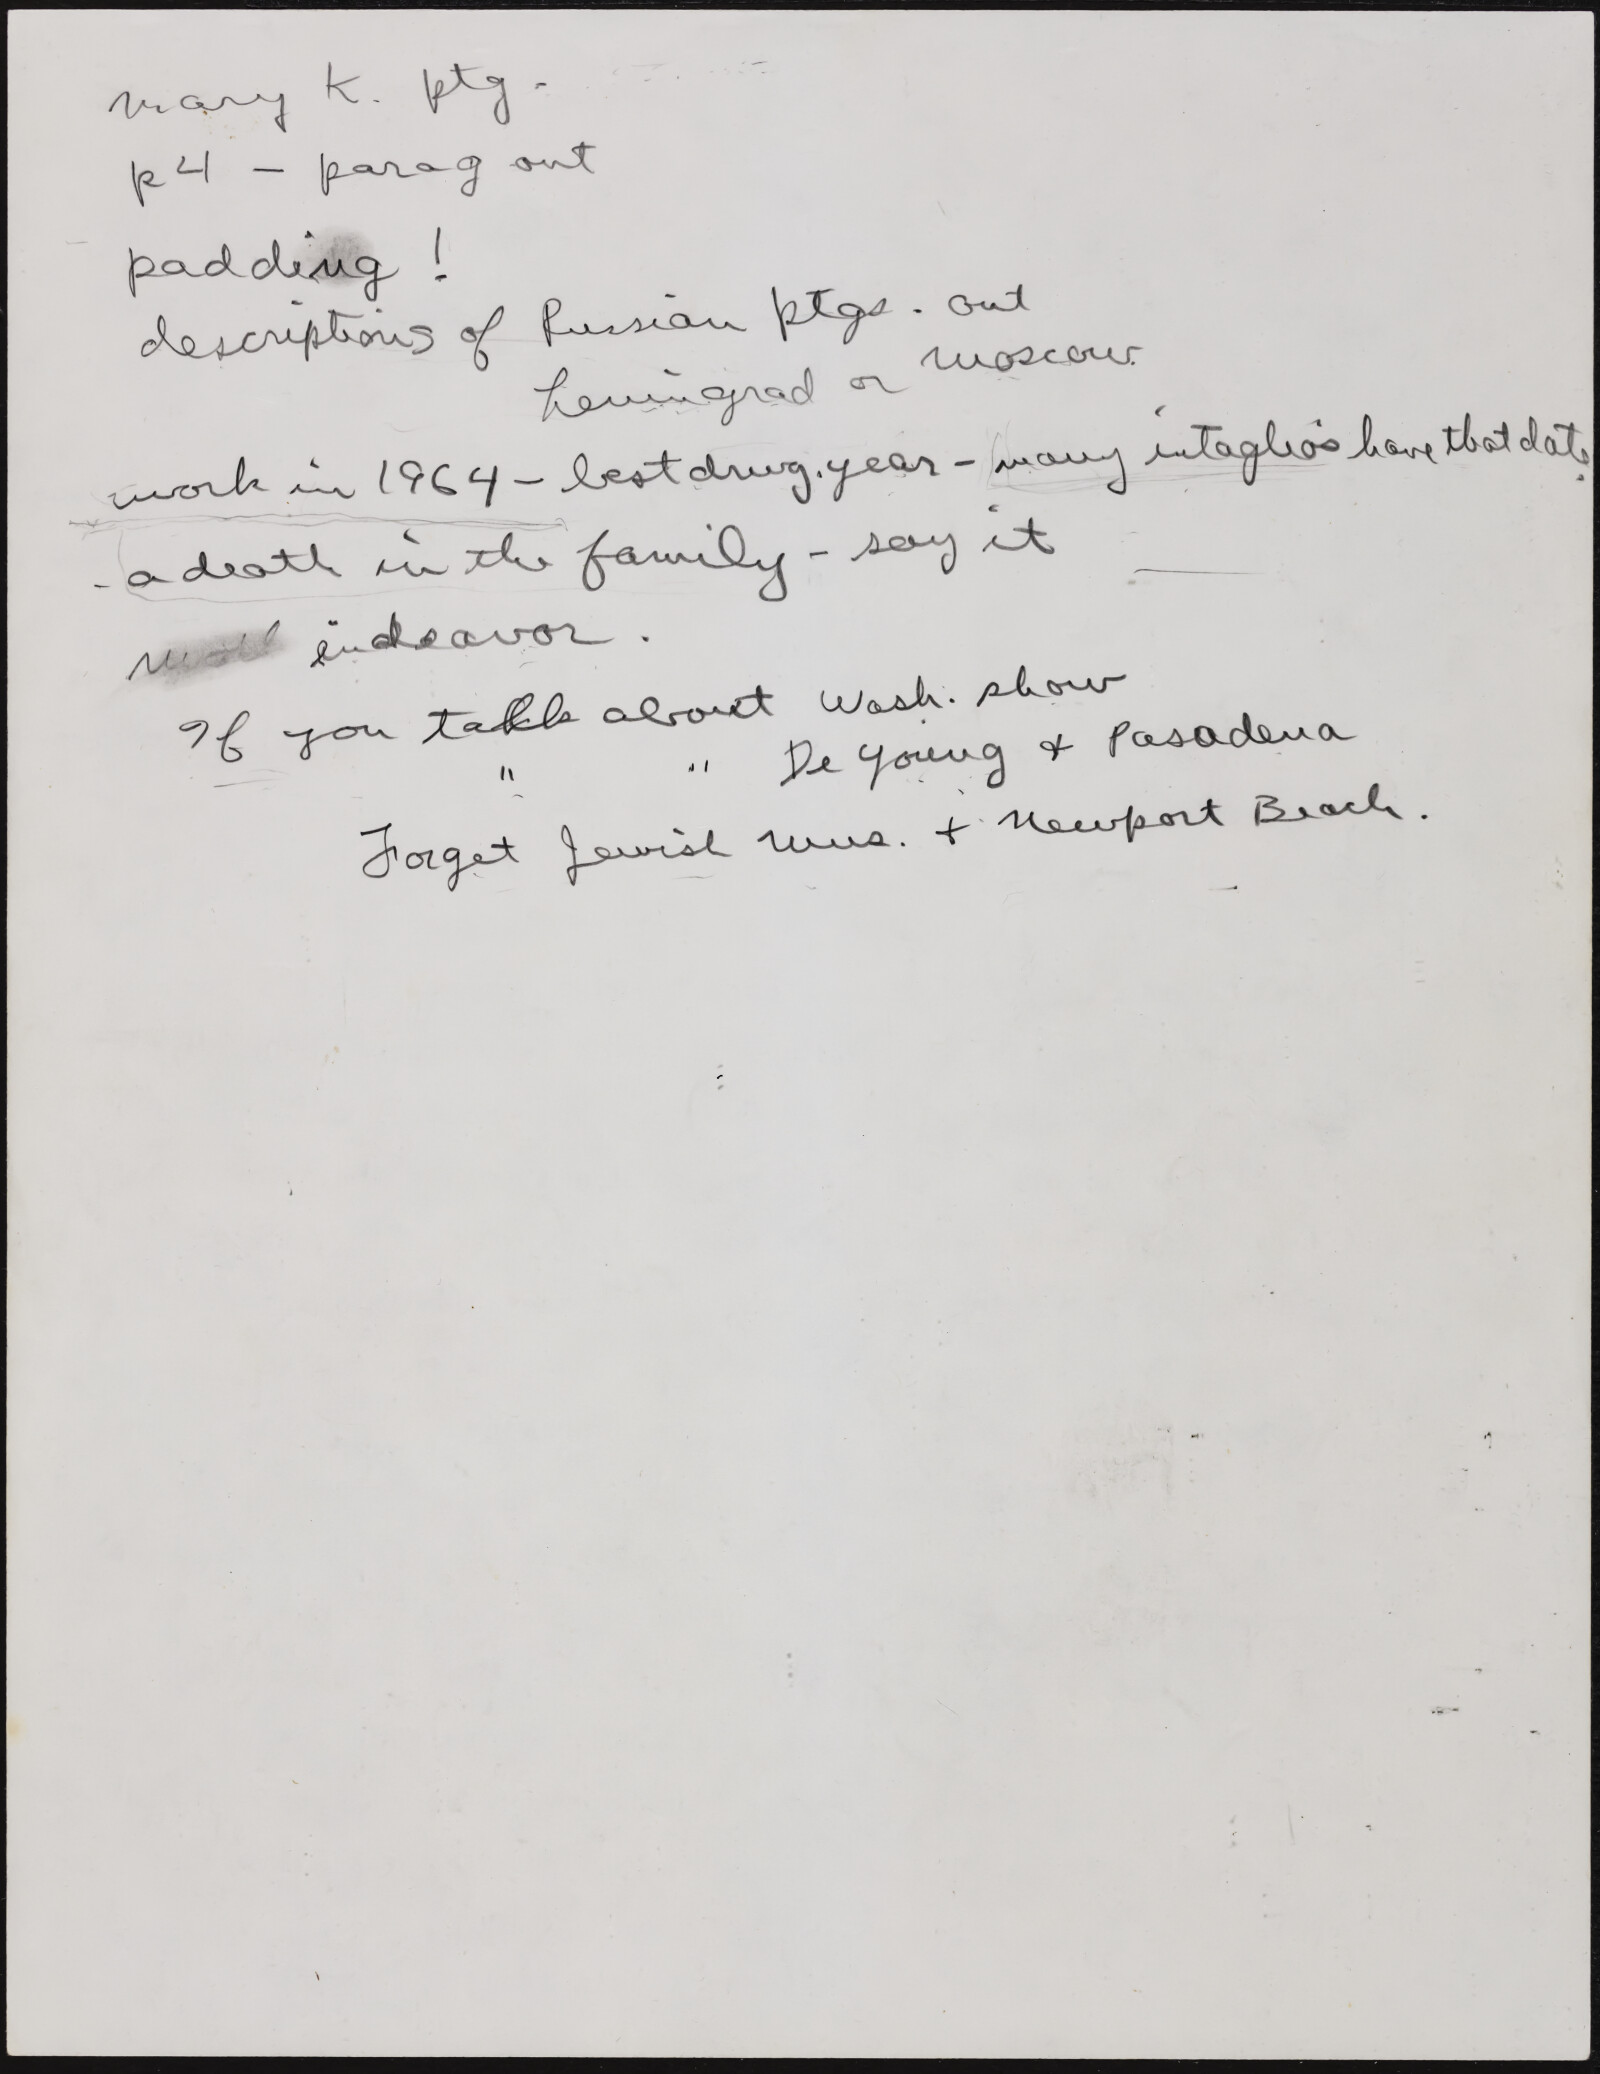 Mary K. ptg.
p4 – parag out
padding!
descriptions of Russian ptgs. out
Leningrad or Moscow.
work in 1964 – best drwg. year – many intaglios have that date.
- a death in the family – say it
endeavor.
If you talk about Wash. show
" " De Young & Pasadena
Forget Jewish Mus. + Newport Beach.